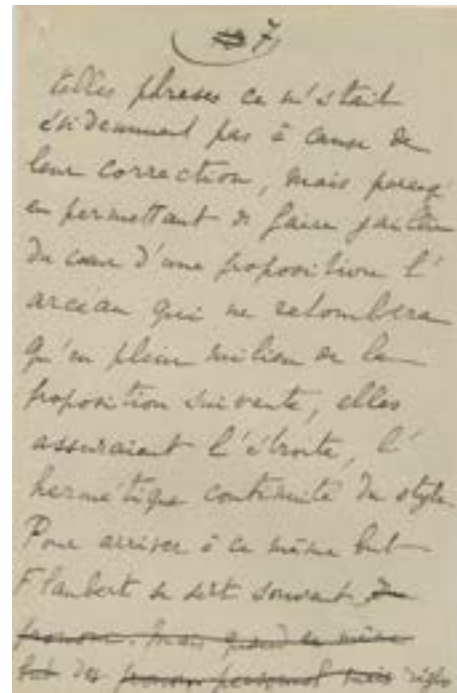 7
telles phrases ce n'était
évidemment pas à cause de
leur correction, mais parcequ'
en permettant de faire jaillir
du cœur d'une proposition l'
arceau qui ne retombera
qu'en plein milieu de la
proposition suivante, elles
assuraient l'étroite, l'
hermétique continuité du style
Pour arriver à ce même but
Flaubert se sert souvent du
pronom. Mais quand ce même
but des pronom personnel mais règles